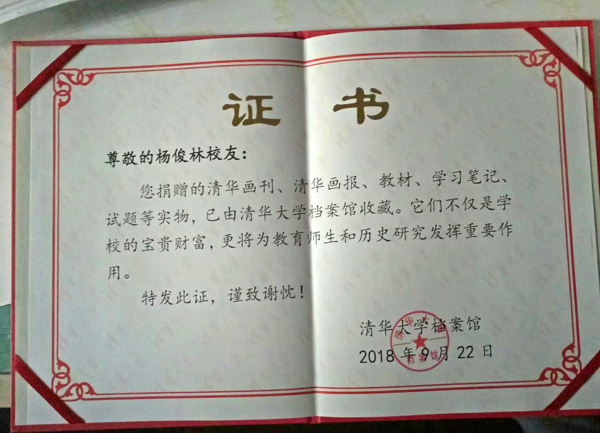 证书
尊敬的杨俊林校友：
您捐赠的清华画刊、清华画报、教材、学习笔记、
试题等实物，已由清华大学档案馆收藏。它们不仅是学
校的宝贵财富，更将为教育师生和历史研究发挥重要作
用。
特发此证，谨致谢忱！
清华大学档案馆
2018 年 9 月 22 日